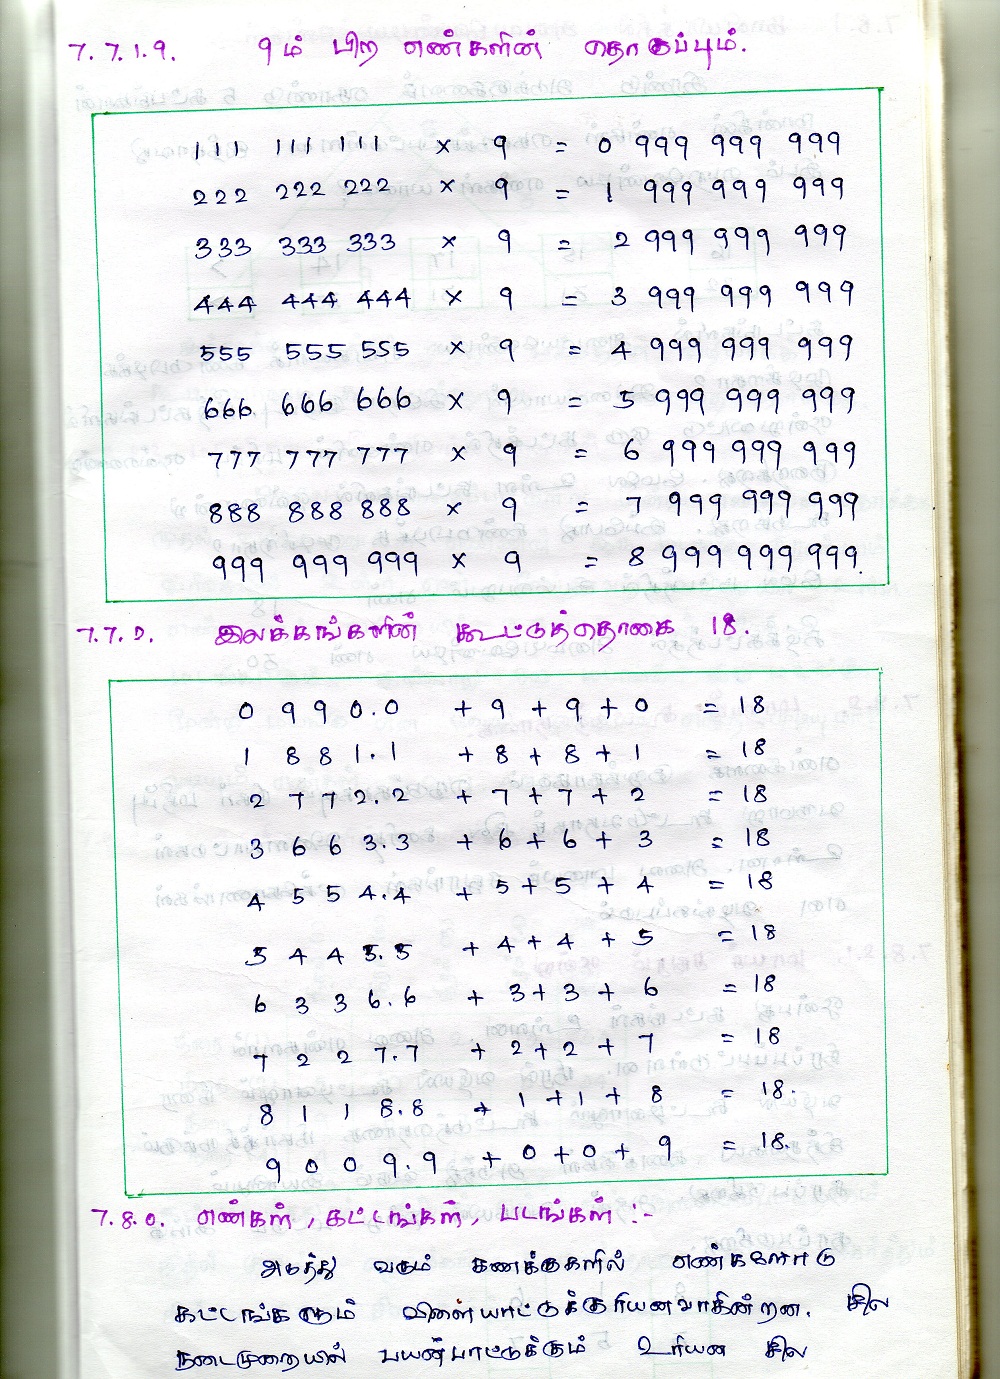 7.7.1.9. 9ம் பிற எண்களின் தொகுப்பும்.
111 111 111 × 9 = 0 999 999 999
222 222 222 × 9 = 1 999 999 999
333 333 333 × 9 = 2 999 999 999
444 444 444 × 9 = 3 999 999 999
555 555 555 × 9 = 4 999 999 999
666 666 666 × 9 = 5 999 999 999
777 777 777 × 9 = 6 999 999 999
888 888 888 × 9 = 7 999 999 999
999 999 999 × 9 = 8 999 999 999.
7.7.2. இலக்கங்களின் கூட்டுத்தொகை 18.
0 9 9 0.0 + 9 + 9 + 0 = 18
1 8 8 1.1 + 8 + 8 + 1 = 18
2 7 7 2.2 + 7 + 7 + 2 = 18
3 6 6 3.3 + 6 + 6 + 3 = 18
4 5 5 4.4 + 5 + 5 + 4 = 18
5 4 4 5.5 + 4 + 4 + 5 = 18
6 3 3 6.6 + 3 + 3 + 6 = 18
7 2 2 7.7 + 2 + 2 + 7 = 18
8 1 1 8.8 + 1 + 1 + 8 = 18.
9 0 0 9.9 + 0 + 0 + 9 = 18.
7.8.0. எண்கள், கட்டங்கள், படங்கள் :-
அடுத்து வரும் கணக்குகளில் எண்களோடு
கட்டங்களும் விளையாட்டுக்குரியனவாகின்றன. சில
நடைமுறையில் பயன்பாட்டுக்கும் உரியன சில